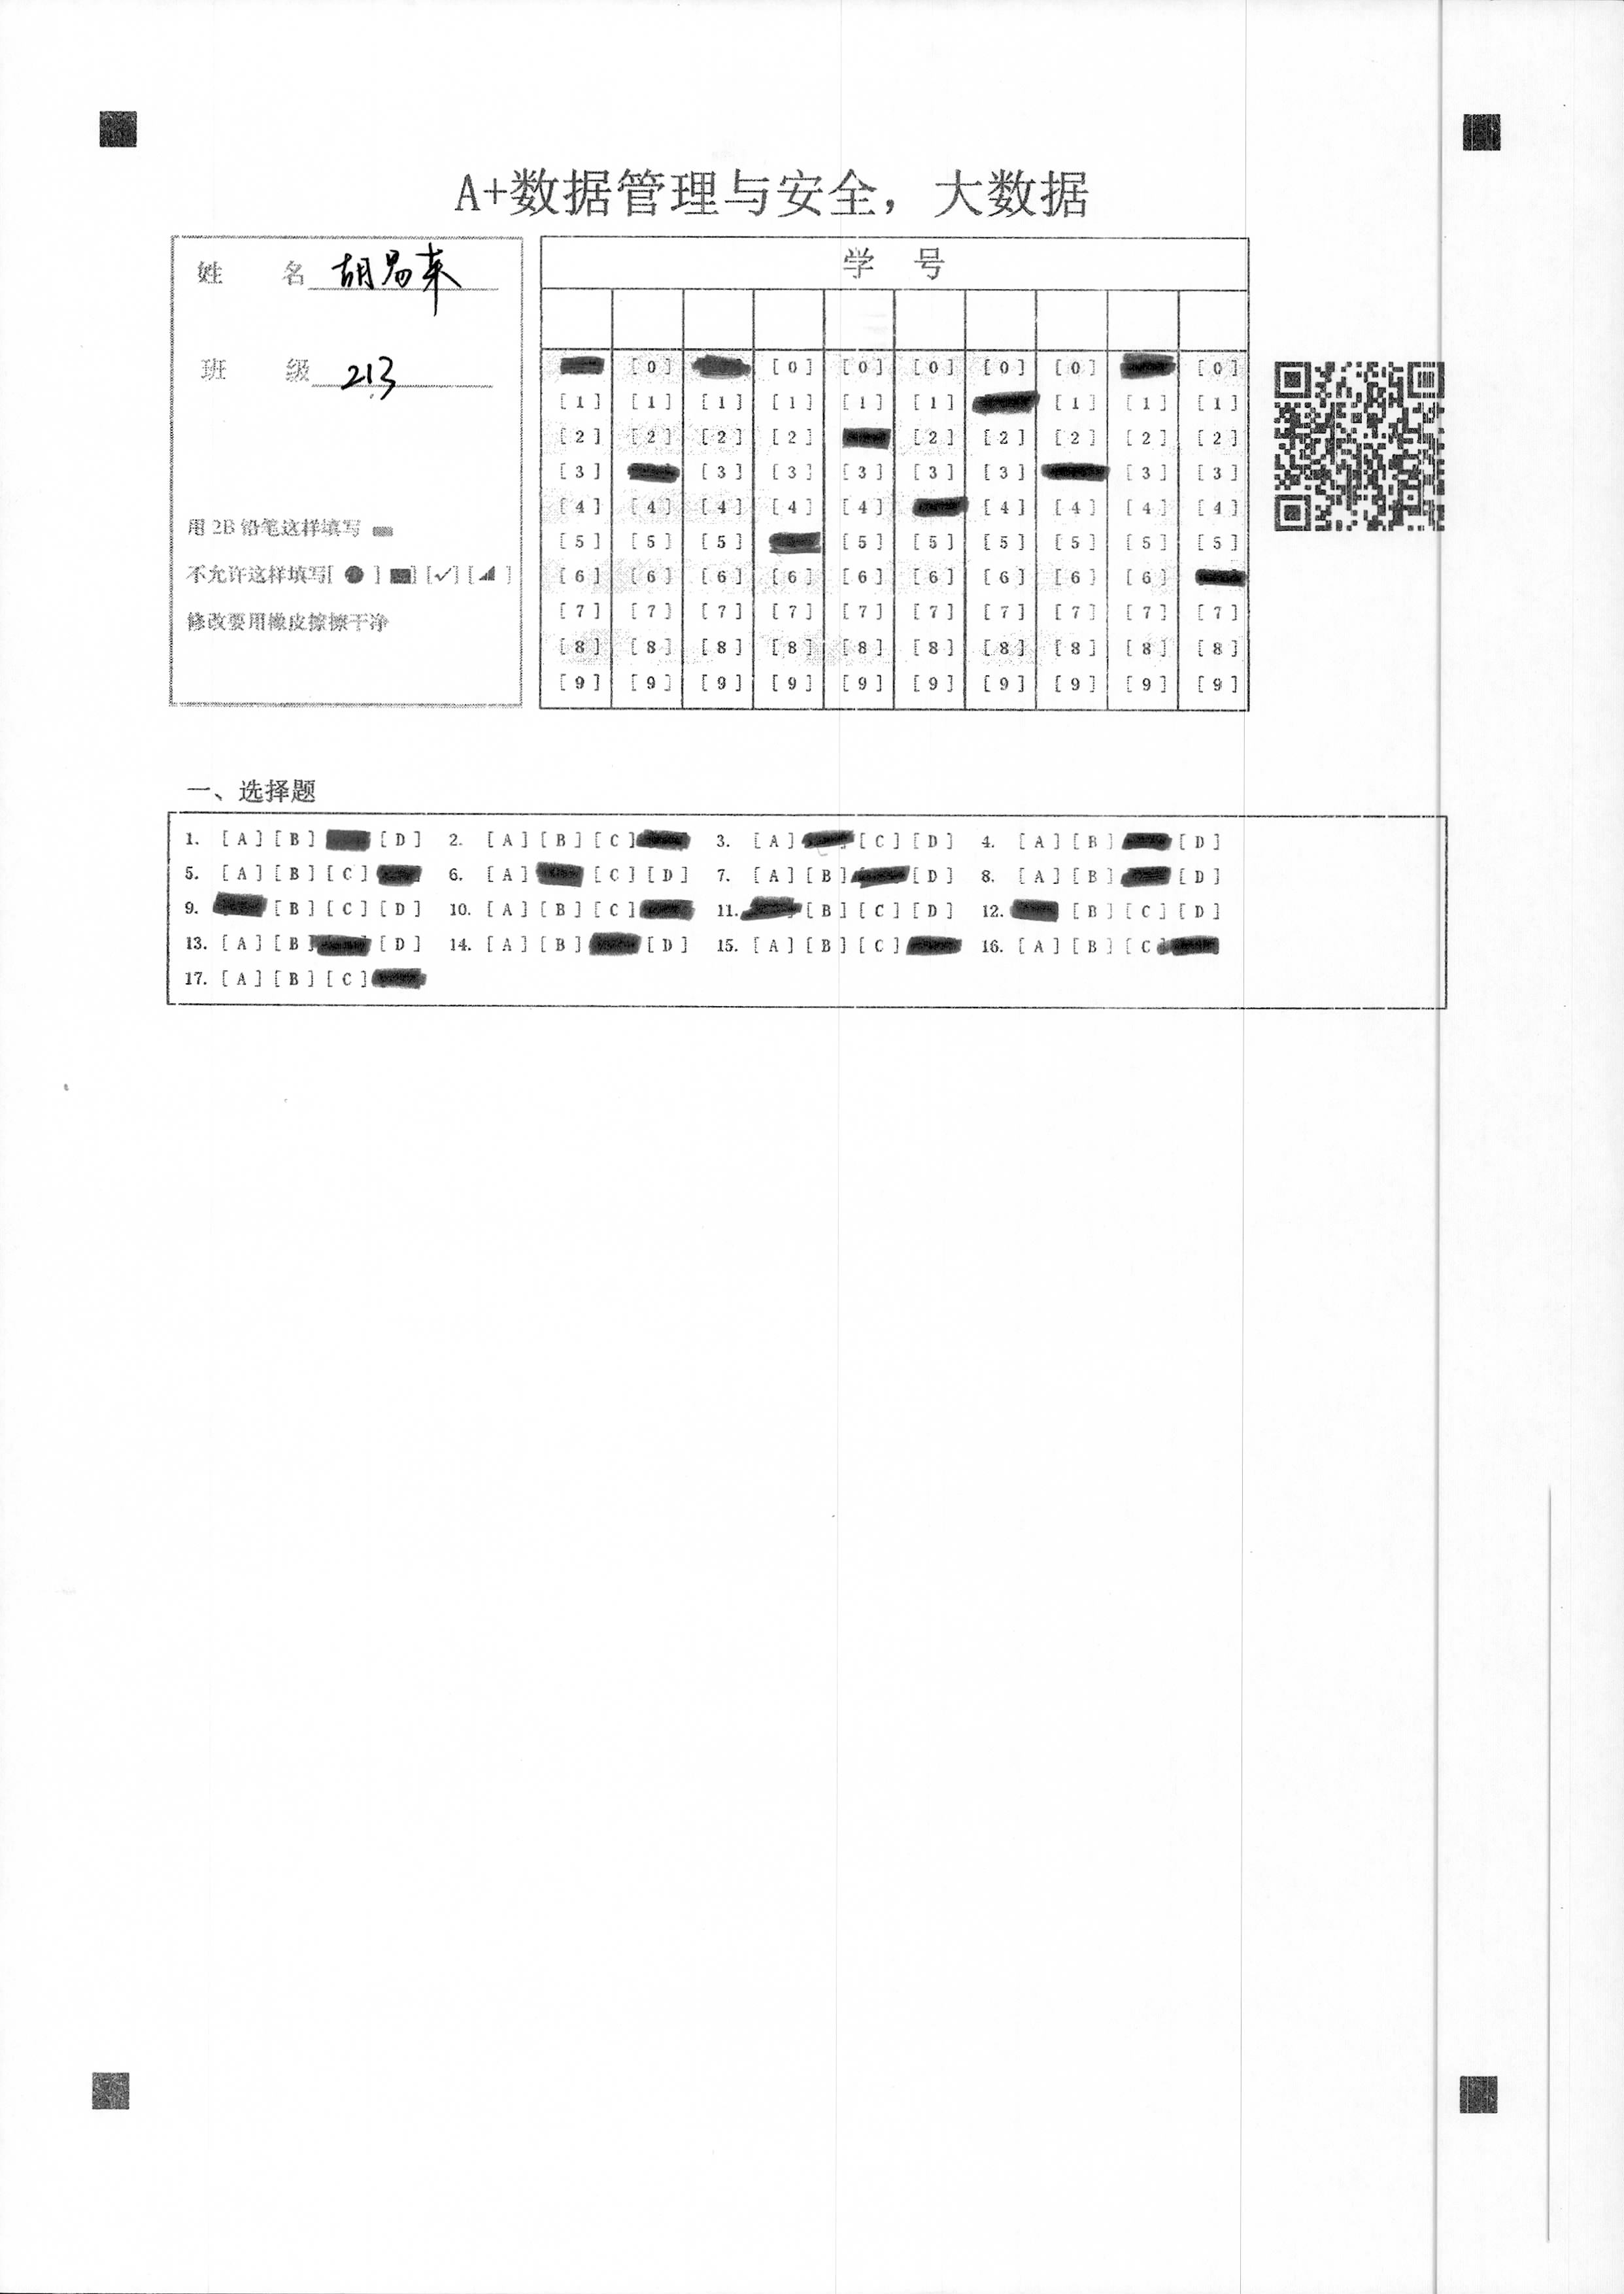 A+数据管理与安全，大数据
姓 名 胡易来
班 级 213
用 2B 铅笔这样填写
不允许这样填写[ ● ] ■] [✓] [ ◢ ]
修改要用橡皮擦擦干净
学 号
[0] [0] [0] [0] [0] [0] [0]
[1] [1] [1] [1] [1] [1] [1] [1] [1]
[2] [2] [2] [2] [2] [2] [2] [2] [2]
[3] [3] [3] [3] [3] [3] [3] [3]
[4] [4] [4] [4] [4] [4] [4] [4] [4]
[5] [5] [5] [5] [5] [5] [5] [5] [5]
[6] [6] [6] [6] [6] [6] [6] [6] [6]
[7] [7] [7] [7] [7] [7] [7] [7] [7] [7]
[8] [8] [8] [8] [8] [8] [8] [8] [8] [8]
[9] [9] [9] [9] [9] [9] [9] [9] [9] [9]
一、选择题
1. [A] [B] [D] 2. [A] [B] [C] 3. [A] [C] [D] 4. [A] [B] [D]
5. [A] [B] [C] 6. [A] [C] [D] 7. [A] [B] [D] 8. [A] [B] [D]
9. [B] [C] [D] 10. [A] [B] [C] 11. [B] [C] [D] 12. [B] [C] [D]
13. [A] [B] [D] 14. [A] [B] [D] 15. [A] [B] [C] 16. [A] [B] [C
17. [A] [B] [C]